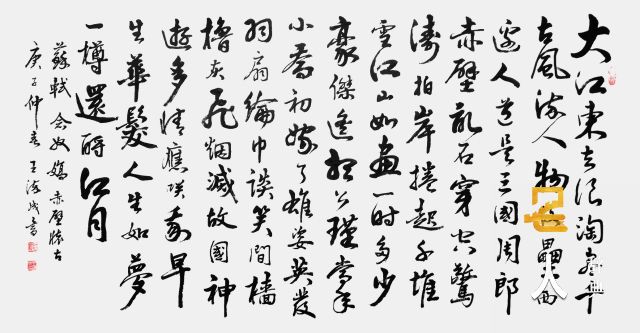 大江東去浪淘盡千
古風流人物故壘西
邊人道是三國周郎
赤壁亂石穿空驚
濤拍岸捲起千堆
雪江山如畫一時多少
豪傑遙想公瑾當年
小喬初嫁了雄姿英發
羽扇綸巾談笑間檣
櫓灰飛烟滅故國神
遊多情應笑我早
生華髮人生如夢
一樽還酹江月
蘇軾念奴嬌赤壁懷古
庚子仲春王海成書
名人